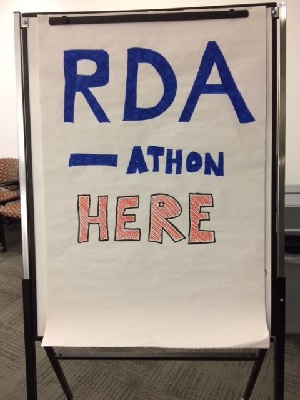 RDA
-ATHON
HERE